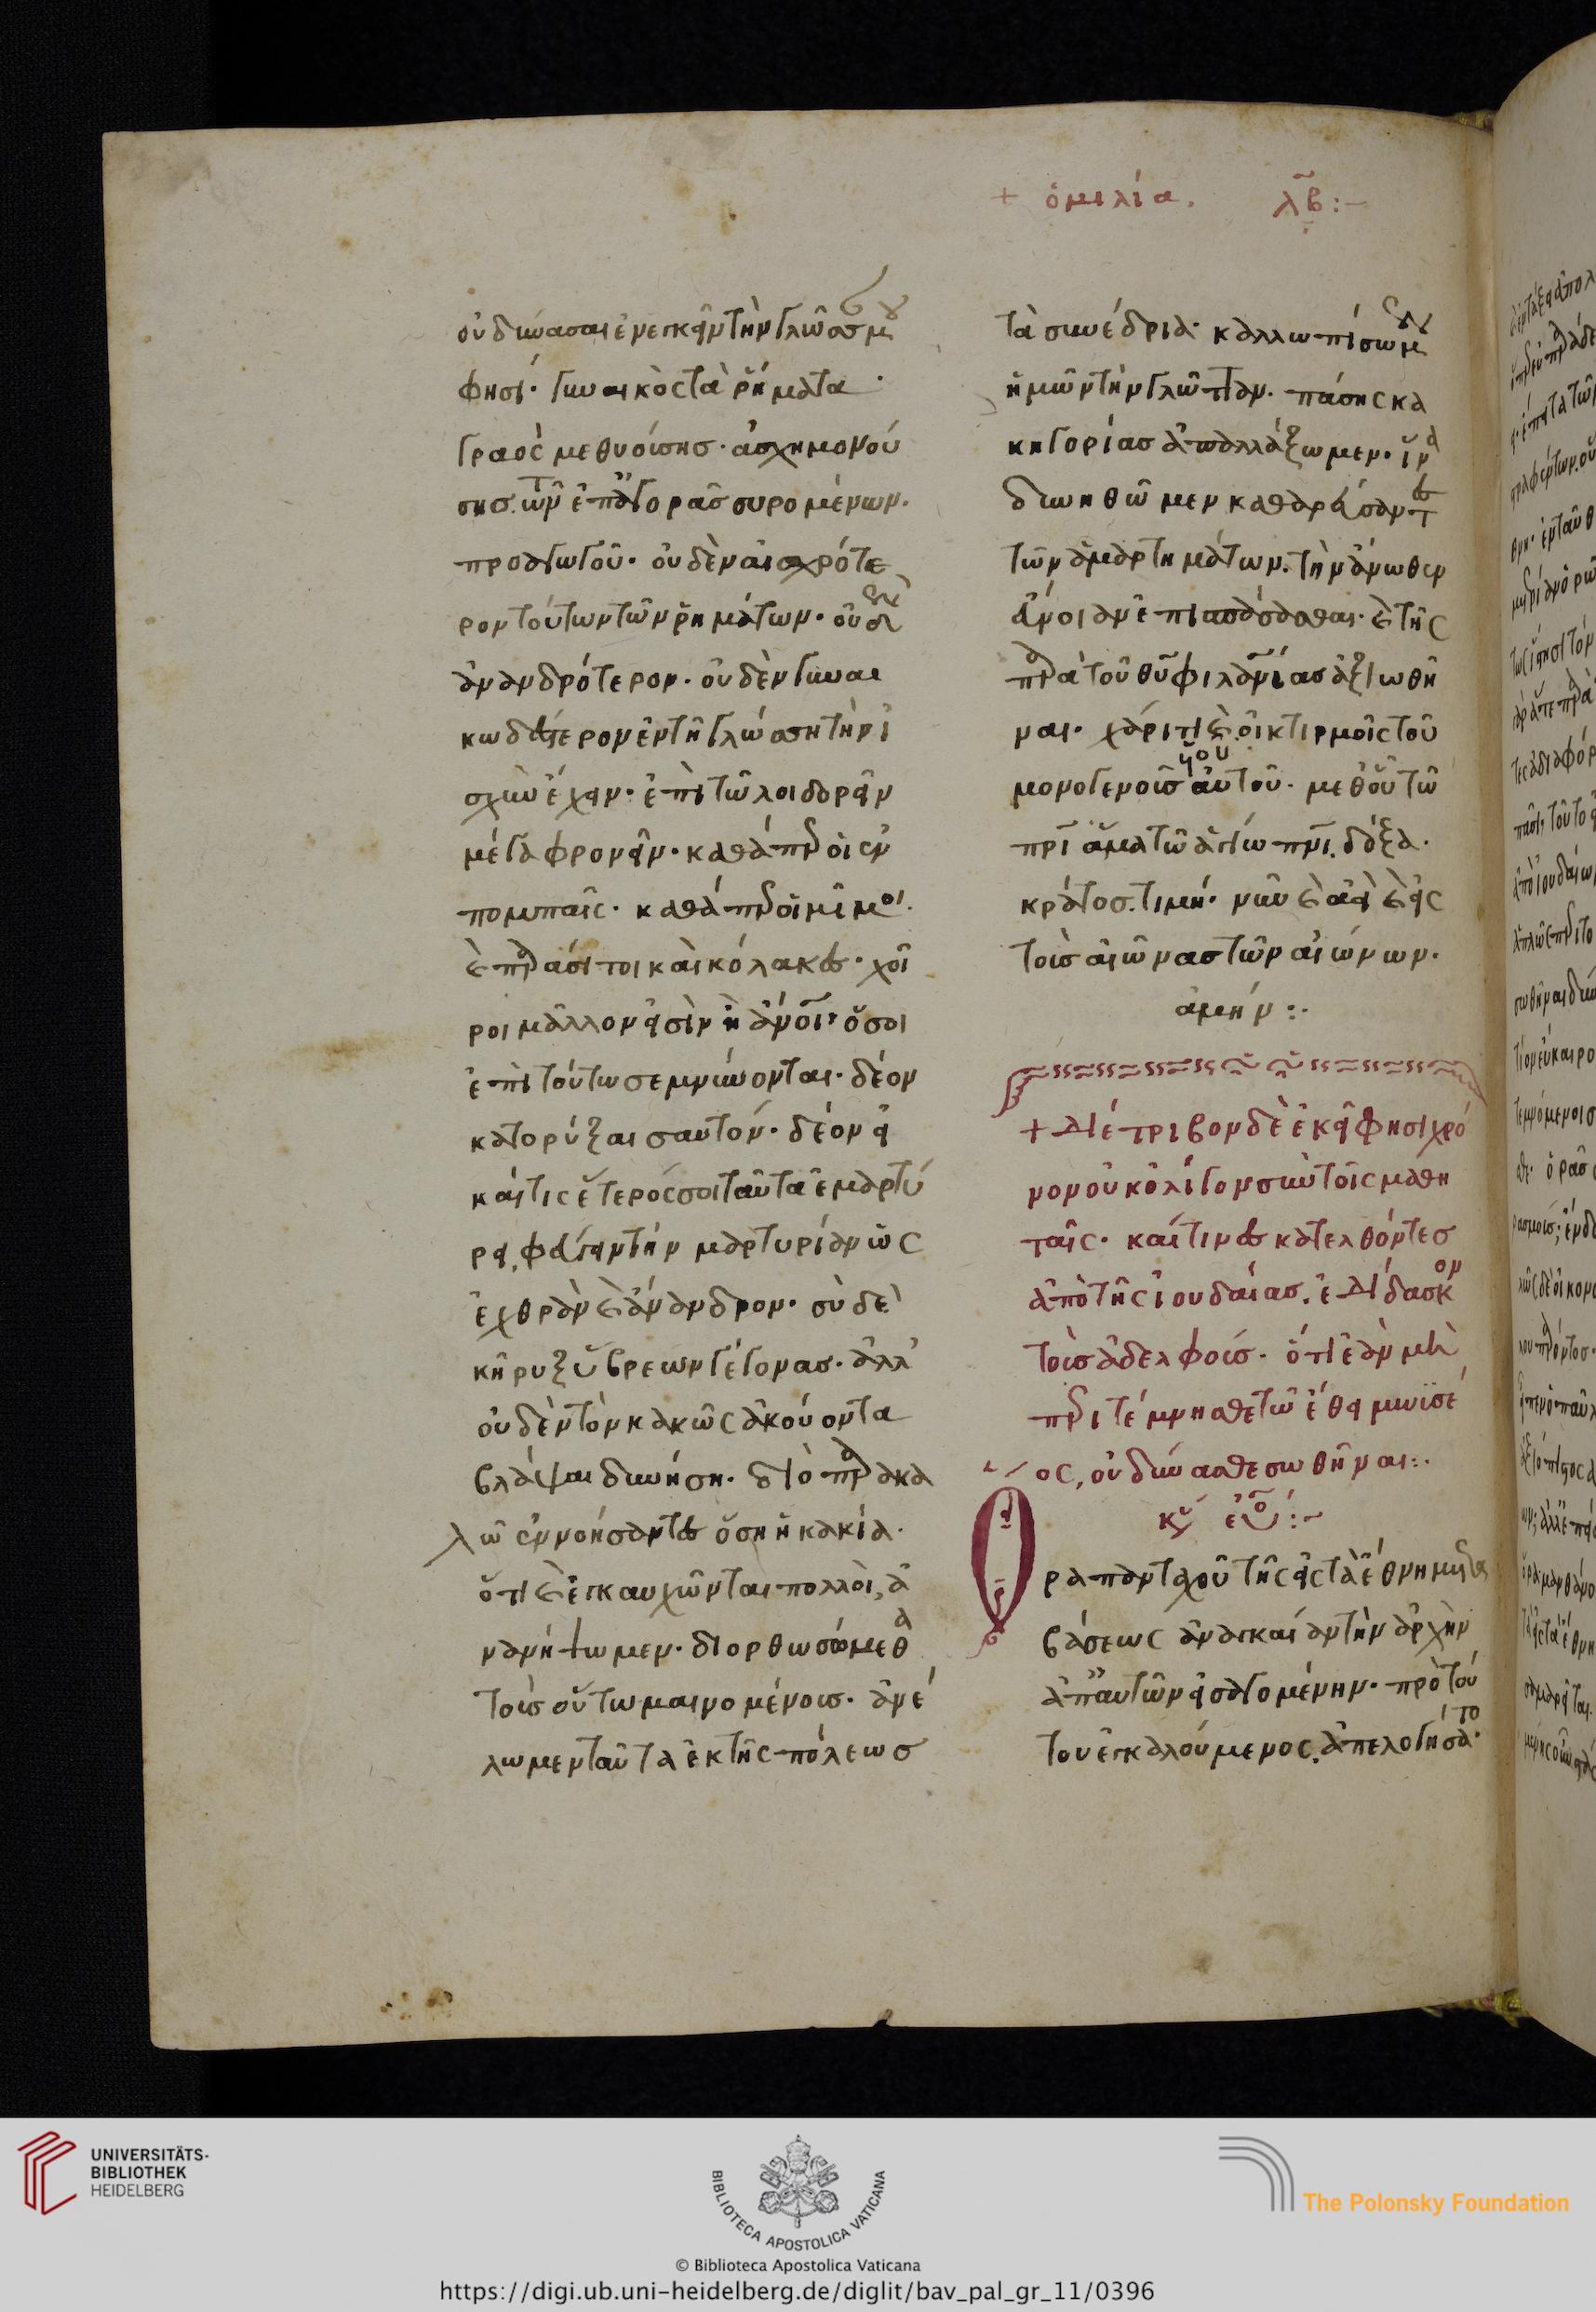 + ὁμιλία. λβ :-
οὐ δύνασαι ἐνεγκεῖν τὴν γλῶσσάν μου
φησί· γυναικὸς τὰ ῥήματα·
γραὸς μεθυούσης· ἀσχημονού
σης. τῶν ἐπ' ἀγορᾶς συρομένων.
προαγωγοῦ· οὐδὲν αἰσχρότε
ρον τούτων τῶν ῥημάτων· οὐδὲν
ἀνανδρότερον· οὐδὲν γυναι
κωδέστερον ἐν τῆ γλώσση τὴν ἰ
σχὺν ἔχειν· ἐπὶ τῶ λοιδορεῖν
μέγα φρονεῖν· καθάπερ οἱ ἐν
πομπαῖς· καθάπερ οἱ μῖμοι·
καὶ παράσιτοι καὶ κόλακες· χοῖ
ροι μᾶλλον εἰσὶν ἢ ἄνοι· ὅσοι
ἐπὶ τούτω σεμνύνονται· δέον
κατορύξαι σαυτόν· δέον εἰ
καί τις ἕτερός σοι ταῦτα ἐμαρτύ
ρει, φεύγειν τὴν μαρτυρίαν ὡς
ἐχθρὰν καὶ ἄνανδρον· σὺ δὲ
κῆρυξ ὕβρεων γέγονας· ἀλλ'
οὐδὲν τὸν κακῶς ἀκούοντα
βλάψαι δυνήση· διὸ παρακα
λῶ ἐννοήσαντες ὅση ἡ κακία·
ὅτι καὶ ἐγκαυχῶνται πολλοὶ, ἀ
νανήψωμεν· διορθωσώμεθα
τοὺς οὕτω μαινομένους· ἀνέ
λωμεν ταῦτα ἐκ τῆς πόλεως
τὰ συνέδρια· καλλωπίσωμεν
ἡμῶν τὴν γλῶτταν· πάσης κα
κηγορίας ἀπαλλάξωμεν· ἵνα
δυνηθῶμεν καθαρεύσαντες
τῶν ἁμαρτημάτων. τὴν ἄνωθεν
εὔνοιαν ἐπισπάσασθαι· καὶ τῆς
παρὰ τοῦ θυ φιλανίας ἀξιωθῆ
ναι· χάριτι καὶ οἰκτιρμοῖς τοῦ
μονογενοῦς υἱοῦ αὐτοῦ· μεθ' οὗ τῶ
πρι ἅμα τῶ ἁγίω πνι. δόξα·
κράτος. τιμή· νῦν καὶ ἀεὶ καὶ εἰς
τοὺς αἰῶνας τῶν αἰώνων·
ἀμήν :·
+ Διέτριβον δὲ ἐκεῖ φησὶ χρό
νον οὐκ ὀλίγον σὺν τοῖς μαθη
ταῖς· καί τινες κατελθόντες
ἀπὸ τῆς ἰουδαίας. ἐδίδασκον
τοὺς ἀδελφούς· ὅτι ἐὰν μὴ
περιτέμνησθε τῶ ἔθει μωϊσέ
ος, οὐ δύνασθε σωθῆναι :·
Ορα πανταχοῦ τῆς εἰς τὰ ἔθνη μετα
βάσεως ἀναγκαίαν τὴν ἀρχὴν
ἀπ' αὐτῶν εἰσαγομένην· πρὸ τού
του ἐγκαλούμενος. ἀπελογήσατο·
UNIVERSITÄTS-
BIBLIOTHEK
HEIDELBERG
BIBLIOTECA APOSTOLICA VATICANA
The Polonsky Foundation
© Biblioteca Apostolica Vaticana
https://digi.ub.uni-heidelberg.de/diglit/bav_pal_gr_11/0396